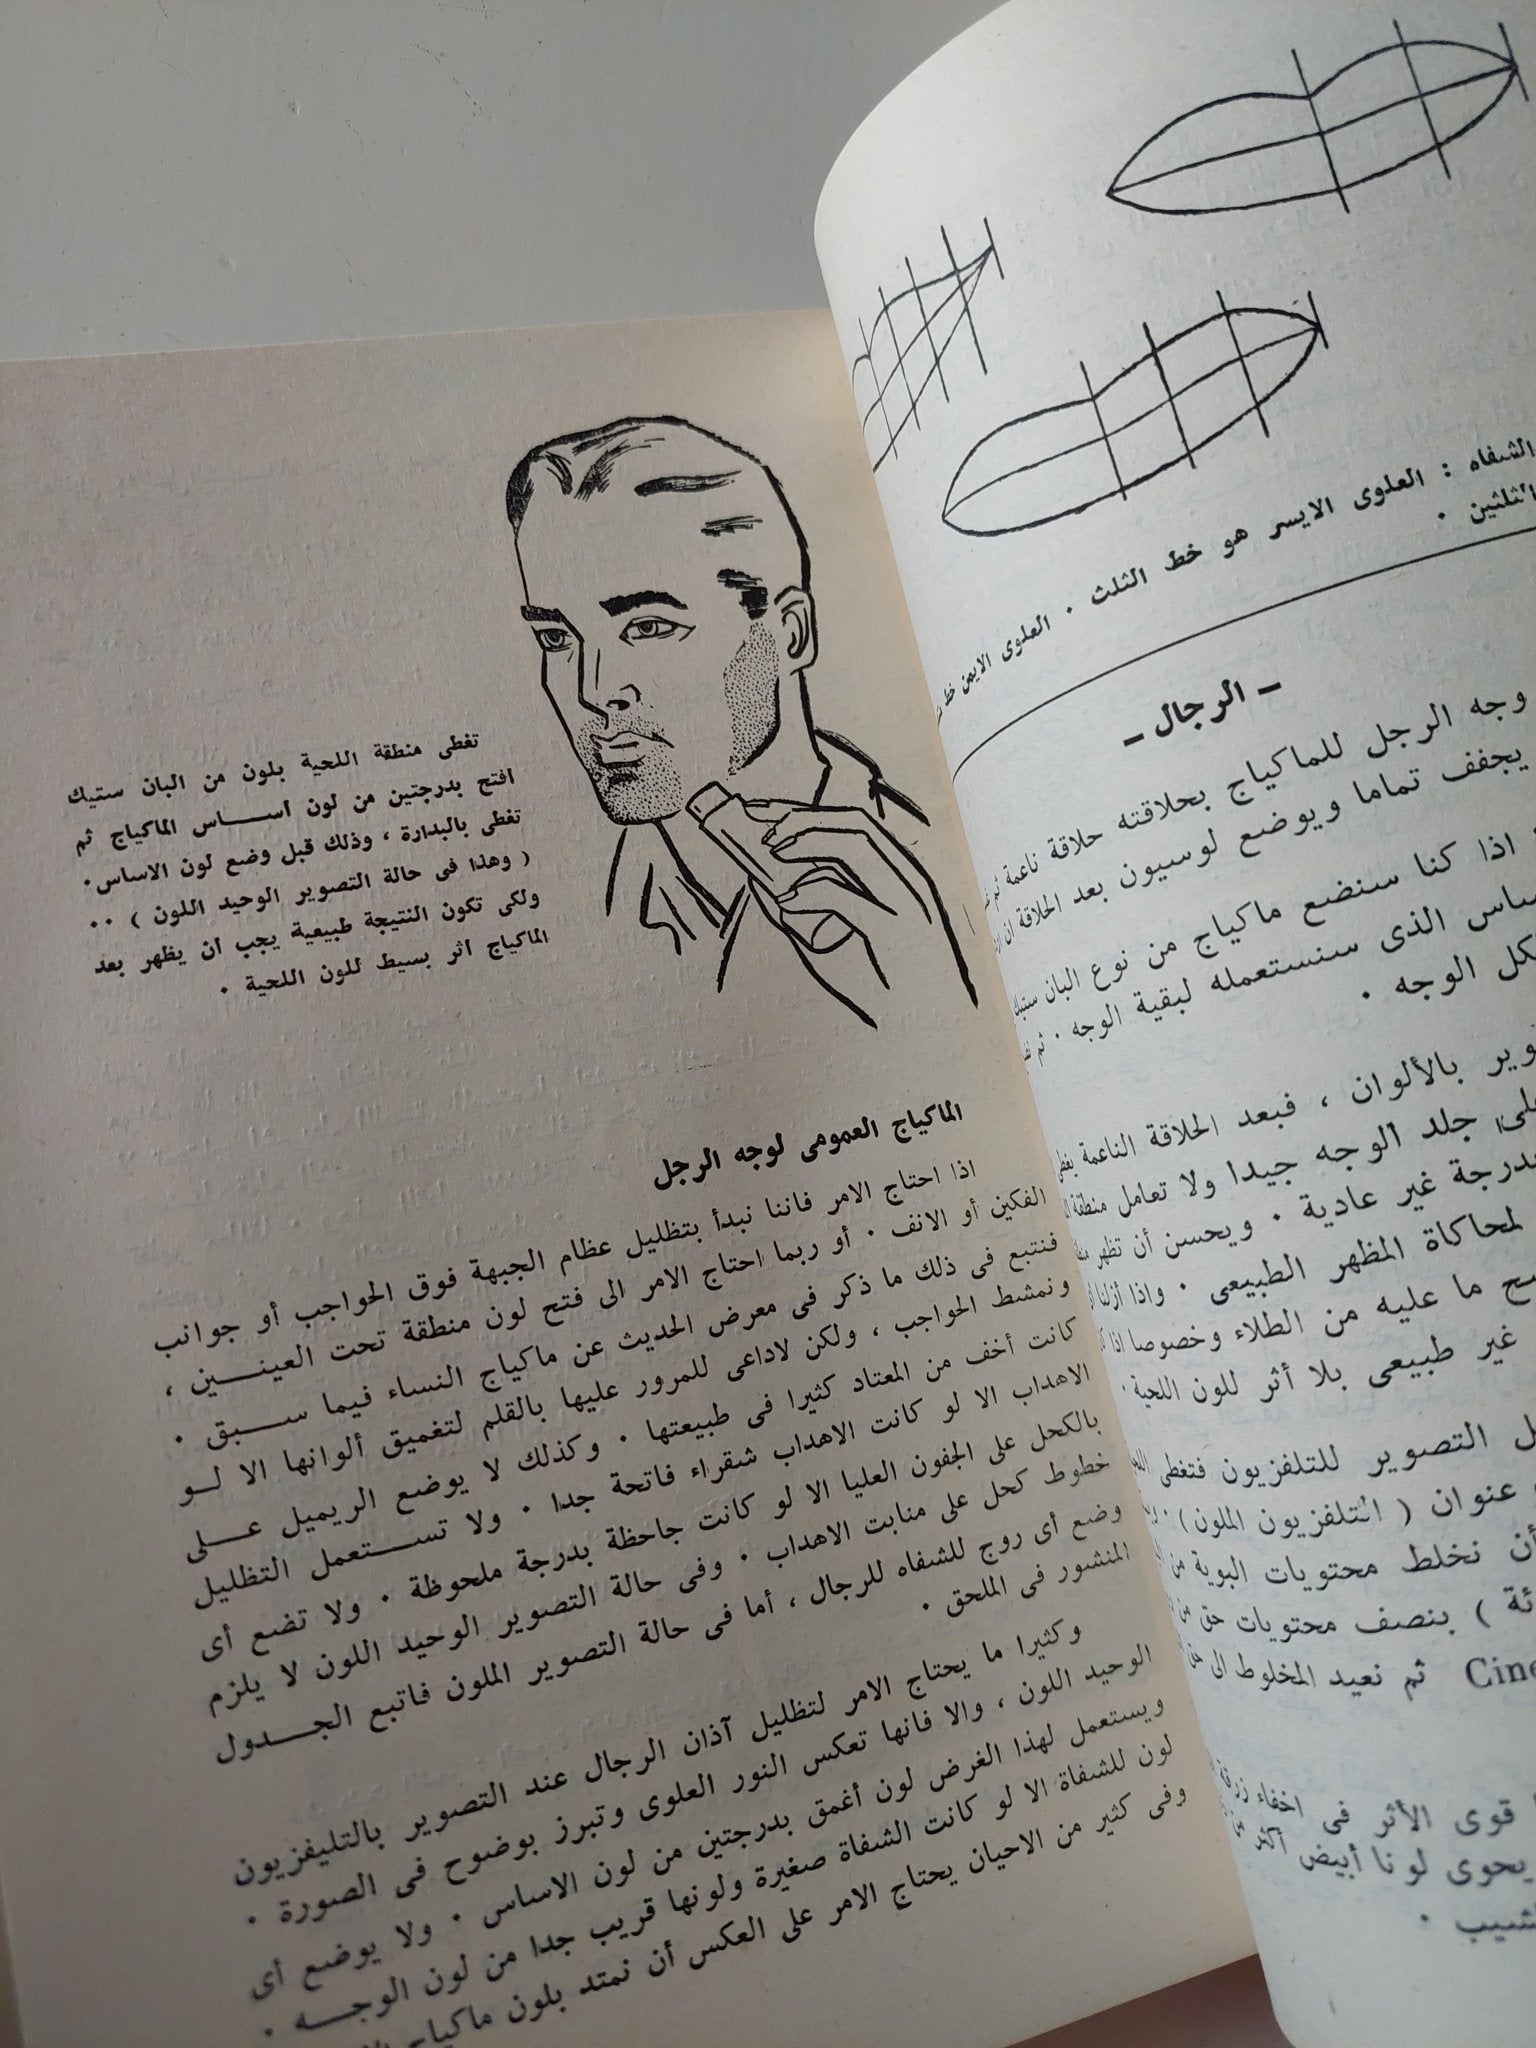 الشفاه : العلوى الايسر هو خط الثلث . العلوى الايمن خط
الثلثين .
— الرجال —
وجه الرجل للماكياج بحلاقته حلاقة ناعمة
يجفف تماما ويوضع لوسيون بعد الحلاقة
اذا كنا سنضع ماكياج من نوع البان ستيك
الذى سنستعمله لبقية الوجه . ثم
الوجه .
بالألوان ، فبعد الحلاقة الناعمة يغطى
جلد الوجه جيدا ولا تعامل منطقة
بدرجة غير عادية . ويحسن أن تظهر
لمحاكاة المظهر الطبيعى . واذا أزلنا
ما عليه من الطلاء وخصوصا اذا
غير طبيعى بلا أثر للون اللحية .
التصوير للتلفزيون فتغطى
عنوان ( التلفزيون الملون ) .
أن نخلط محتويات البوية من
) بنصف محتويات حق من
ثم نعيد المخلوط الى
قوى الأثر فى اخفاء زرقة
يحوى لونا أبيض أكثر
تغطى منطقة اللحية بلون من البان ستيك
افتح بدرجتين من لون أساس الماكياج ثم
تغطى بالبدارة ، وذلك قبل وضع لون الاساس .
( وهذا فى حالة التصوير الوحيد اللون ) . .
ولكى تكون النتيجة طبيعية يجب أن يظهر بعد
الماكياج أثر بسيط للون اللحية .
الماكياج العمومى لوجه الرجل
اذا احتاج الامر فاننا نبدأ بتظليل عظام الجبهة فوق الحواجب أو جوانب
الفكين أو الانف . أو ربما احتاج الامر الى فتح لون منطقة تحت العينين ،
فنتبع فى ذلك ما ذكر فى معرض الحديث عن ماكياج النساء فيما سبق .
ونمشط الحواجب ، ولكن لاداعى للمرور عليها بالقلم لتغميق ألوانها الا لو
كانت أخف من المعتاد كثيرا فى طبيعتها . وكذلك لا يوضع الريميل على
الاهداب الا لو كانت الاهداب شقراء فاتحة جدا . ولا تستعمل التظليل
بالكحل على الجفون العليا الا لو كانت جاحظة بدرجة ملحوظة . ولا تضع أى
خطوط كحل على منابت الاهداب . وفى حالة التصوير الوحيد اللون لا يلزم
وضع أى روج للشفاه للرجال ، أما فى حالة التصوير الملون فاتبع الجدول
المنشور فى الملحق .
وكثيرا ما يحتاج الامر لتظليل آذان الرجال عند التصوير بالتليفزيون
الوحيد اللون ، والا فانها تعكس النور العلوى وتبرز بوضوح فى الصورة .
ويستعمل لهذا الغرض لون أغمق بدرجتين من لون الاساس . ولا يوضع أى
لون للشفاة الا لو كانت الشفاة صغيرة ولونها قريب جدا من لون الوجه .
وفى كثير من الاحيان يحتاج الامر على العكس أن نمتد بلون ماكياج